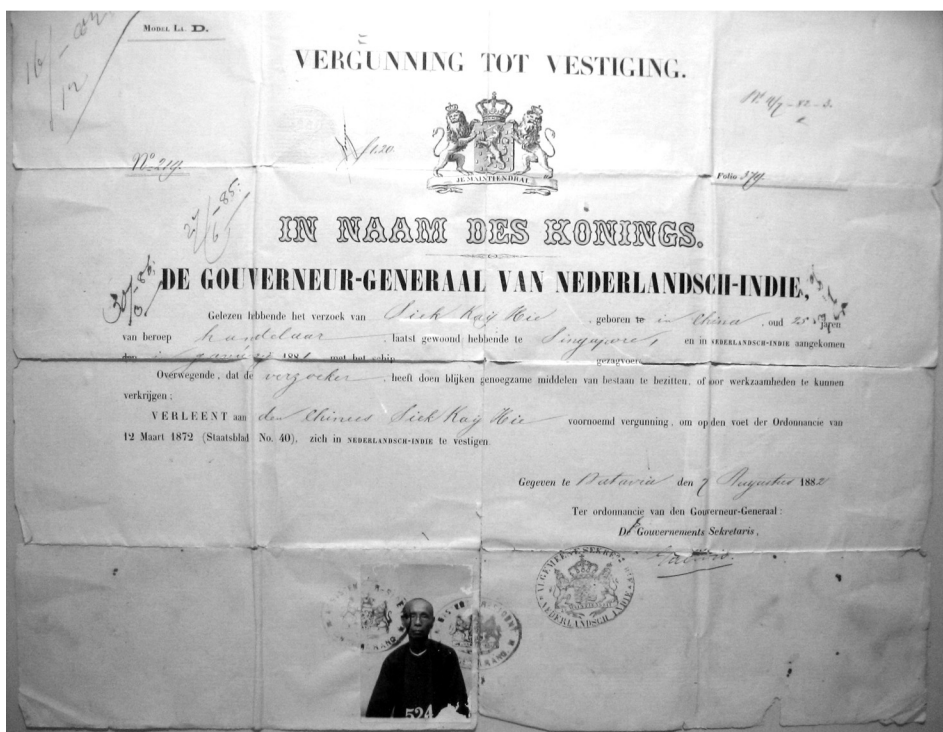 MODEL La. D.
16/12
VERGUNNING TOT VESTIGING.
f 1.20
JE MAINTIENDRAI
No 219.
Folio 379.
27/6 - 85.
IN NAAM DES KONINGS.
DE GOUVERNEUR-GENERAAL VAN NEDERLANDSCH-INDIE,
Gelezen hebbende het verzoek van Siek Kaÿ Hie, geboren te in China, oud 25 jaren
van beroep handelaar, laatst gewoond hebbende te Singapore, en in NEDERLANDSCH-INDIE aangekomen
1881 met het schip gezagvoerder
Overwegende, dat de verzoeker, heeft doen blijken genoegzame middelen van bestaan te bezitten, of door werkzaamheden te kunnen
verkrijgen;
VERLEENT aan den Chinees Siek Kaÿ Hie voornoemd vergunning, om op den voet der Ordonnancie van
12 Maart 1872 (Staatsblad No. 40), zich in NEDERLANDSCH-INDIE te vestigen.
Gegeven te Batavia den 7 Augustus 1882
Ter ordonnancie van den Gouverneur-Generaal:
De Gouvernements Sekretaris,
ALGEMEENE SEKRET
NEDERLANDSCH INDIE
524